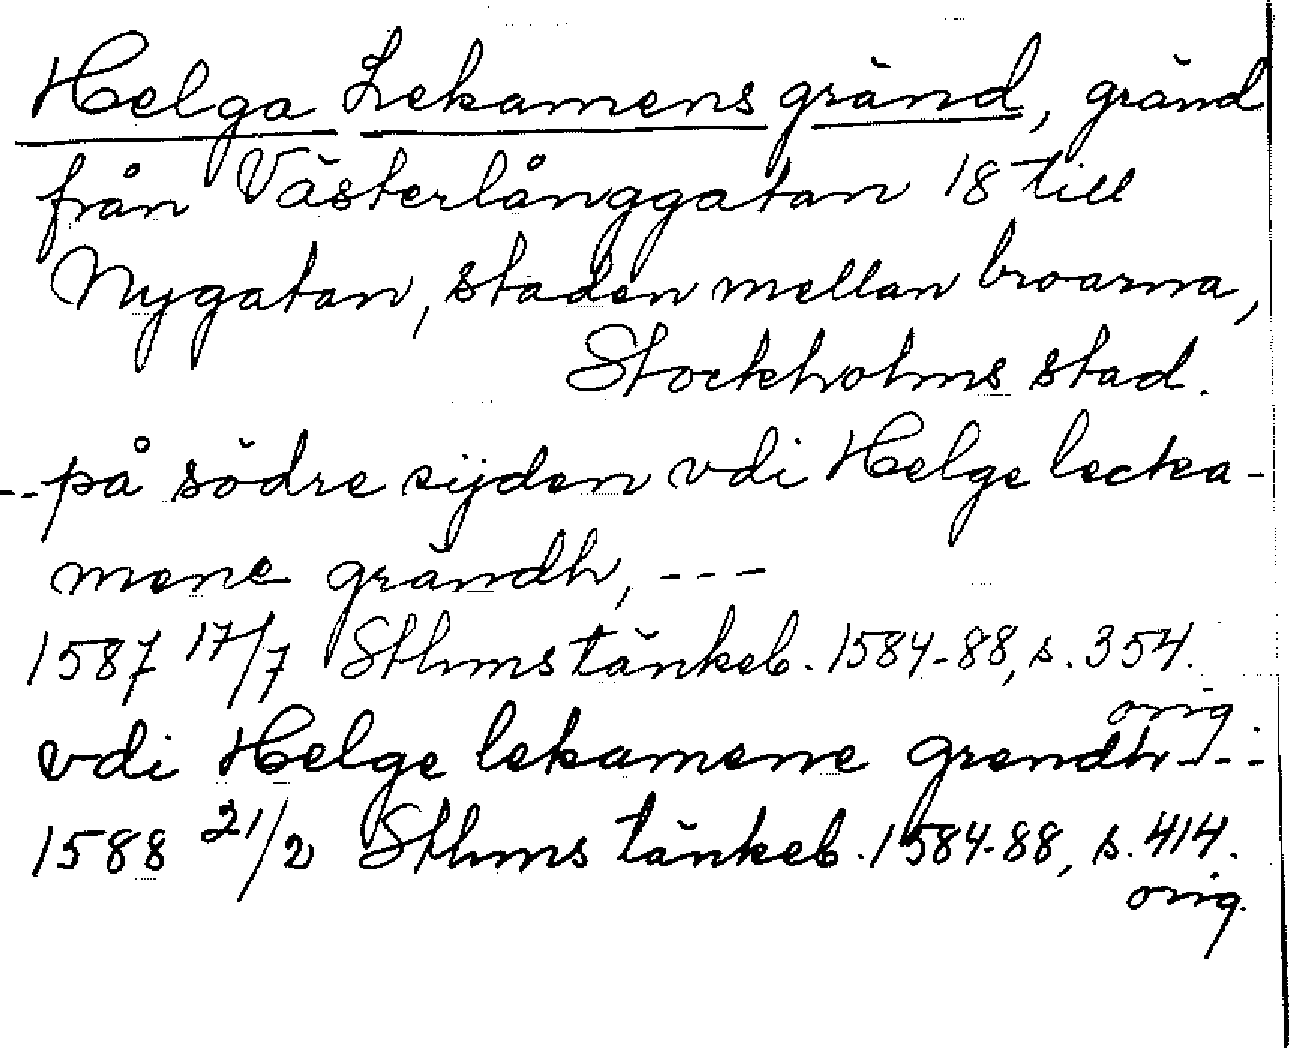 Helga Lekamens gränd, gränd
från Västerlånggatan 18 till
Nygatan, staden mellan broarna,
Stockholms stad.
--på södre sijden vdi Helge lecka-
mene grändh, ---
1587 17/7 Sthms tänkeb. 1584-88, s. 354.
orig.
vdi Helge lekamene grendh---
1588 21/2 Sthms tänkeb. 1584-88, s. 414.
orig.